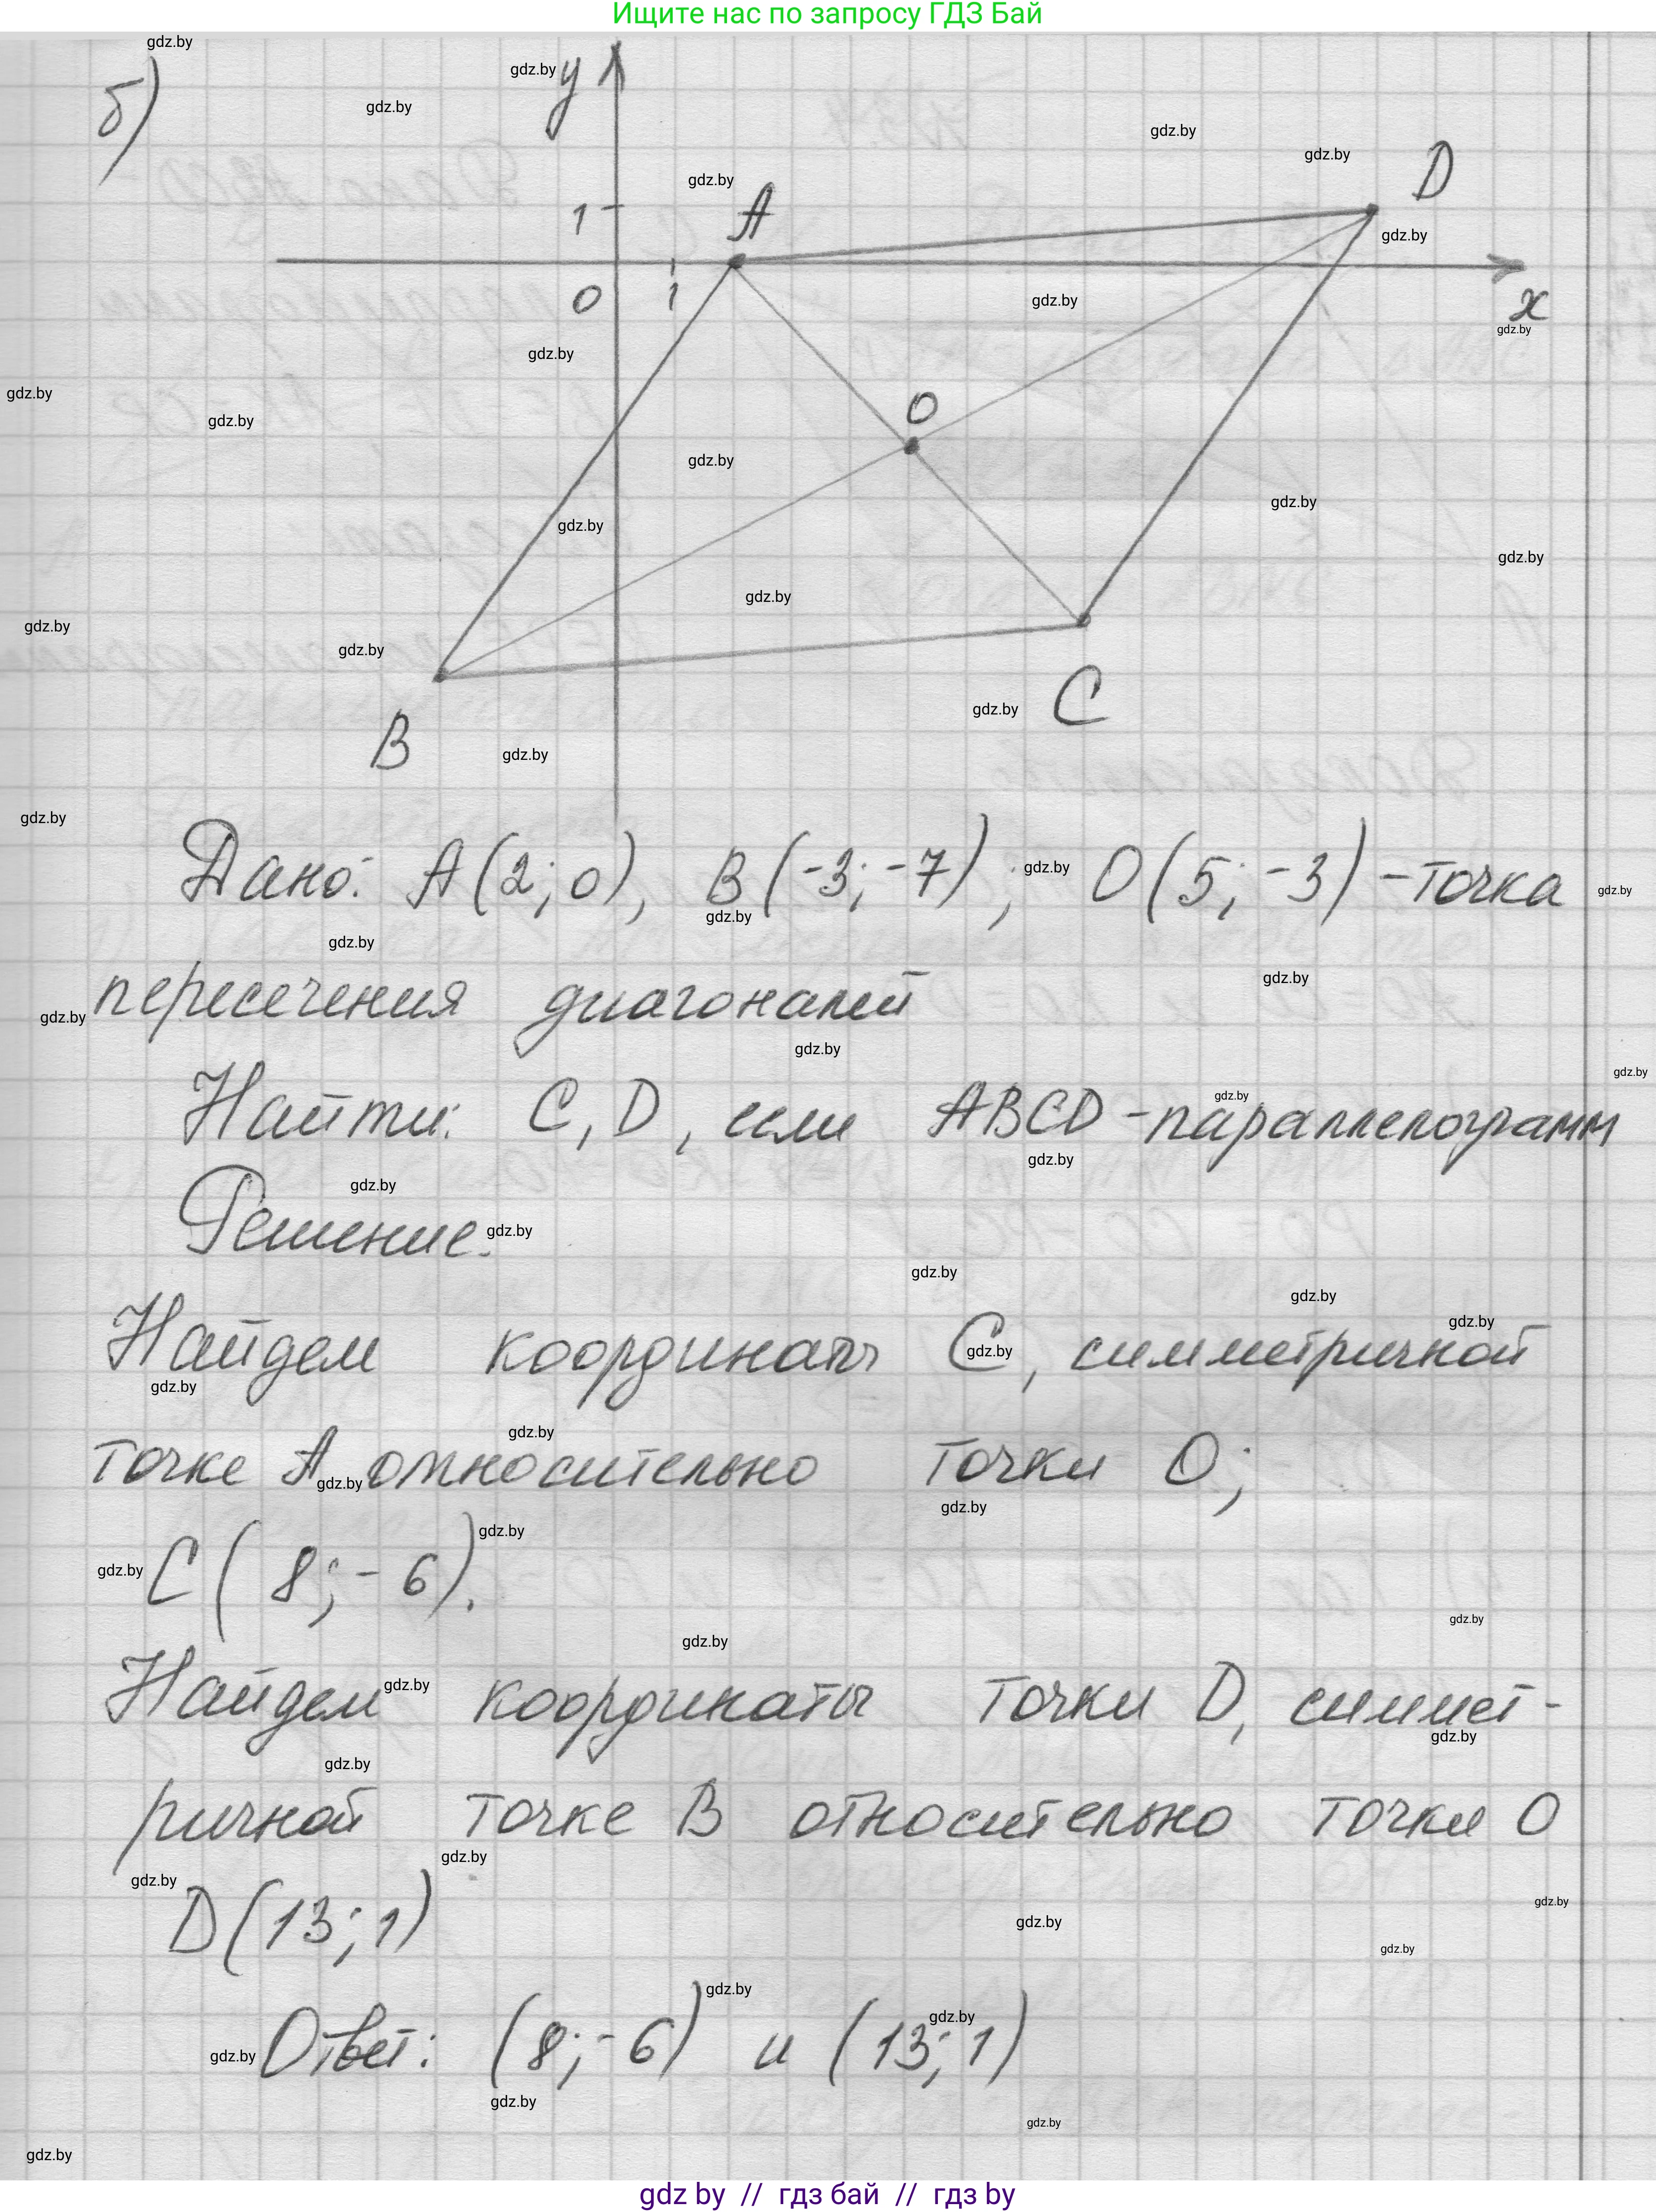 Ищите нас по запросу ГДЗ Бай
б)
y
1
A
D
0
1
x
O
B
C
Дано: A(2; 0), B(-3; -7); O(5; -3) - точка
пересечения диагоналей
Найти: C, D, если ABCD - параллелограмм
Решение.
Найдем координаты C, симметричной
точке A относительно точки O;
C(8; -6).
Найдем координаты точки D, симмет-
ричной точке B относительно точки O
D(13; 1)
Ответ: (8; -6) и (13; 1)
gdz by // гдз бай // гдз by